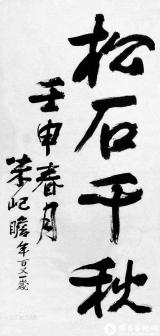 松石千秋
壬申春月
朱屺瞻年百又一歲